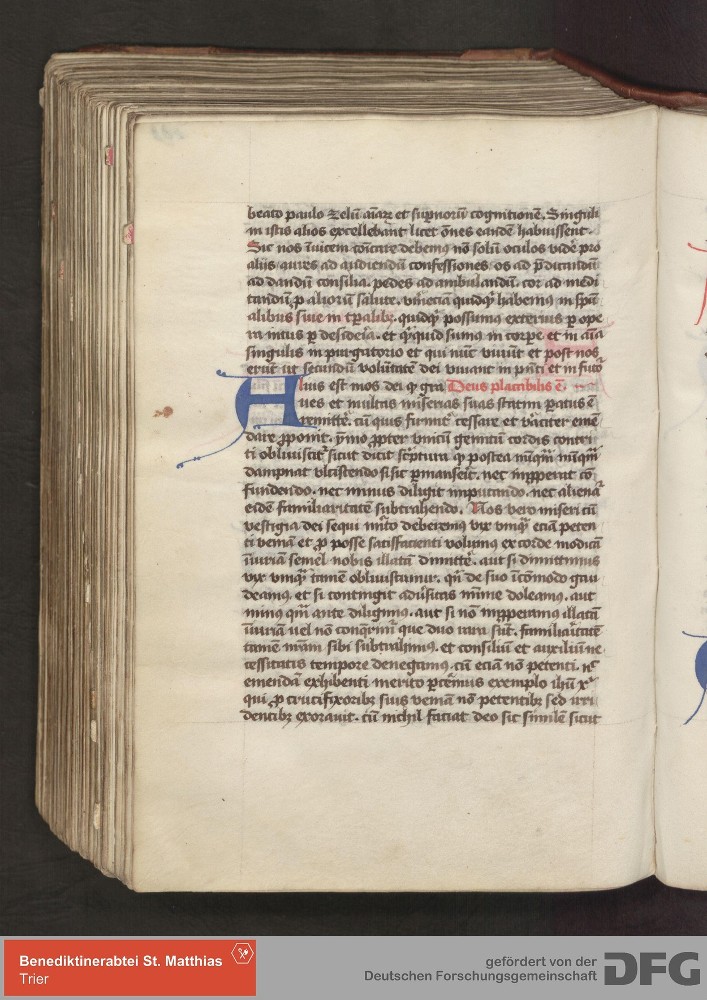 beato paulo zelū aīaꝝ et supnorū cognitionē. Singuli
in istis alios excellebant licet ōnes eandē habuissent.
Sic nos īuicem cōicare debemꝰ nō solū oculos vidē pro
aliis aures ad audiendū confessiones os ad p̄dicandū
ad dandū consilia. pedes ad ambulandū. cor ad medi
tandū ꝓ alioruꝫ salute. vniuersa quidqꝫ habemꝰ in sp̄u
alibus siue in tꝑalibꝫ. quidqꝫ possumꝰ exterius ꝑ ope
ra intus ꝑ desideīa. et qͥcquid sumꝰ in corꝑe et in aīa
singulis in purgatorio et qui nūc viuūt et post nos
erūt ut secundū volūtatē dei viuant in p̄nti et in futͦ
Alius est mos dei qͥ gͣ Deus placabilis ē
ues et multas miserias suas statim ꝑatus ē
remittē. cū quis firmiṫ cessare et vͣciter emē
dare ꝓponit. ymo ꝓpter vnicū gemitū cordis contri
ti obliuiscit᷑ sicut dicit sc̄ptura qͥ postea nūqͣm nūqͣm
dampnat vlciscendo si sic ꝑmanserit. nec inꝓperat cō
fundendo. nec minus diligit imputando. nec alienat
eidē familiaritatē subtrahendo. Nos vero miseri cū
vestigia dei sequi mͥto deberemꝰ vix vnqͣ eciā peten
ti veniā et ꝓ posse satisfacienti volumꝰ ex corde modicā
iniuriā semel nobis illatā dimittē. aut si dimittimus
vix vnqͣ tamē obliuiscimur. qn̄ de suo īcōmodo gau
deamꝰ. et si contingit aduſitas mīme doleamꝰ. aut
minꝰ qͣm ante diligimꝰ. aut si nō inꝓperamꝰ illatā
iniuriā uel nō conqͥrim᷑ que duo rara sūt. familiaritatē
tamē nr̄am sibi subtrahimꝰ. et consiliū et auxiliū ne
cessitatis tempore denegamꝰ. cū eciā nō petenti. nͨ
emendā exhibenti merito ꝑcemus exemplo ih̄u xͥ
qui ꝓ crucifixoribꝫ suis veniā nō petentibꝫ sed irri
dentibꝫ exorauit. cū nichil faciat deo sic similē sicut
Benediktinerabtei St. Matthias
Trier
gefördert von der
Deutschen Forschungsgemeinschaft
DFG